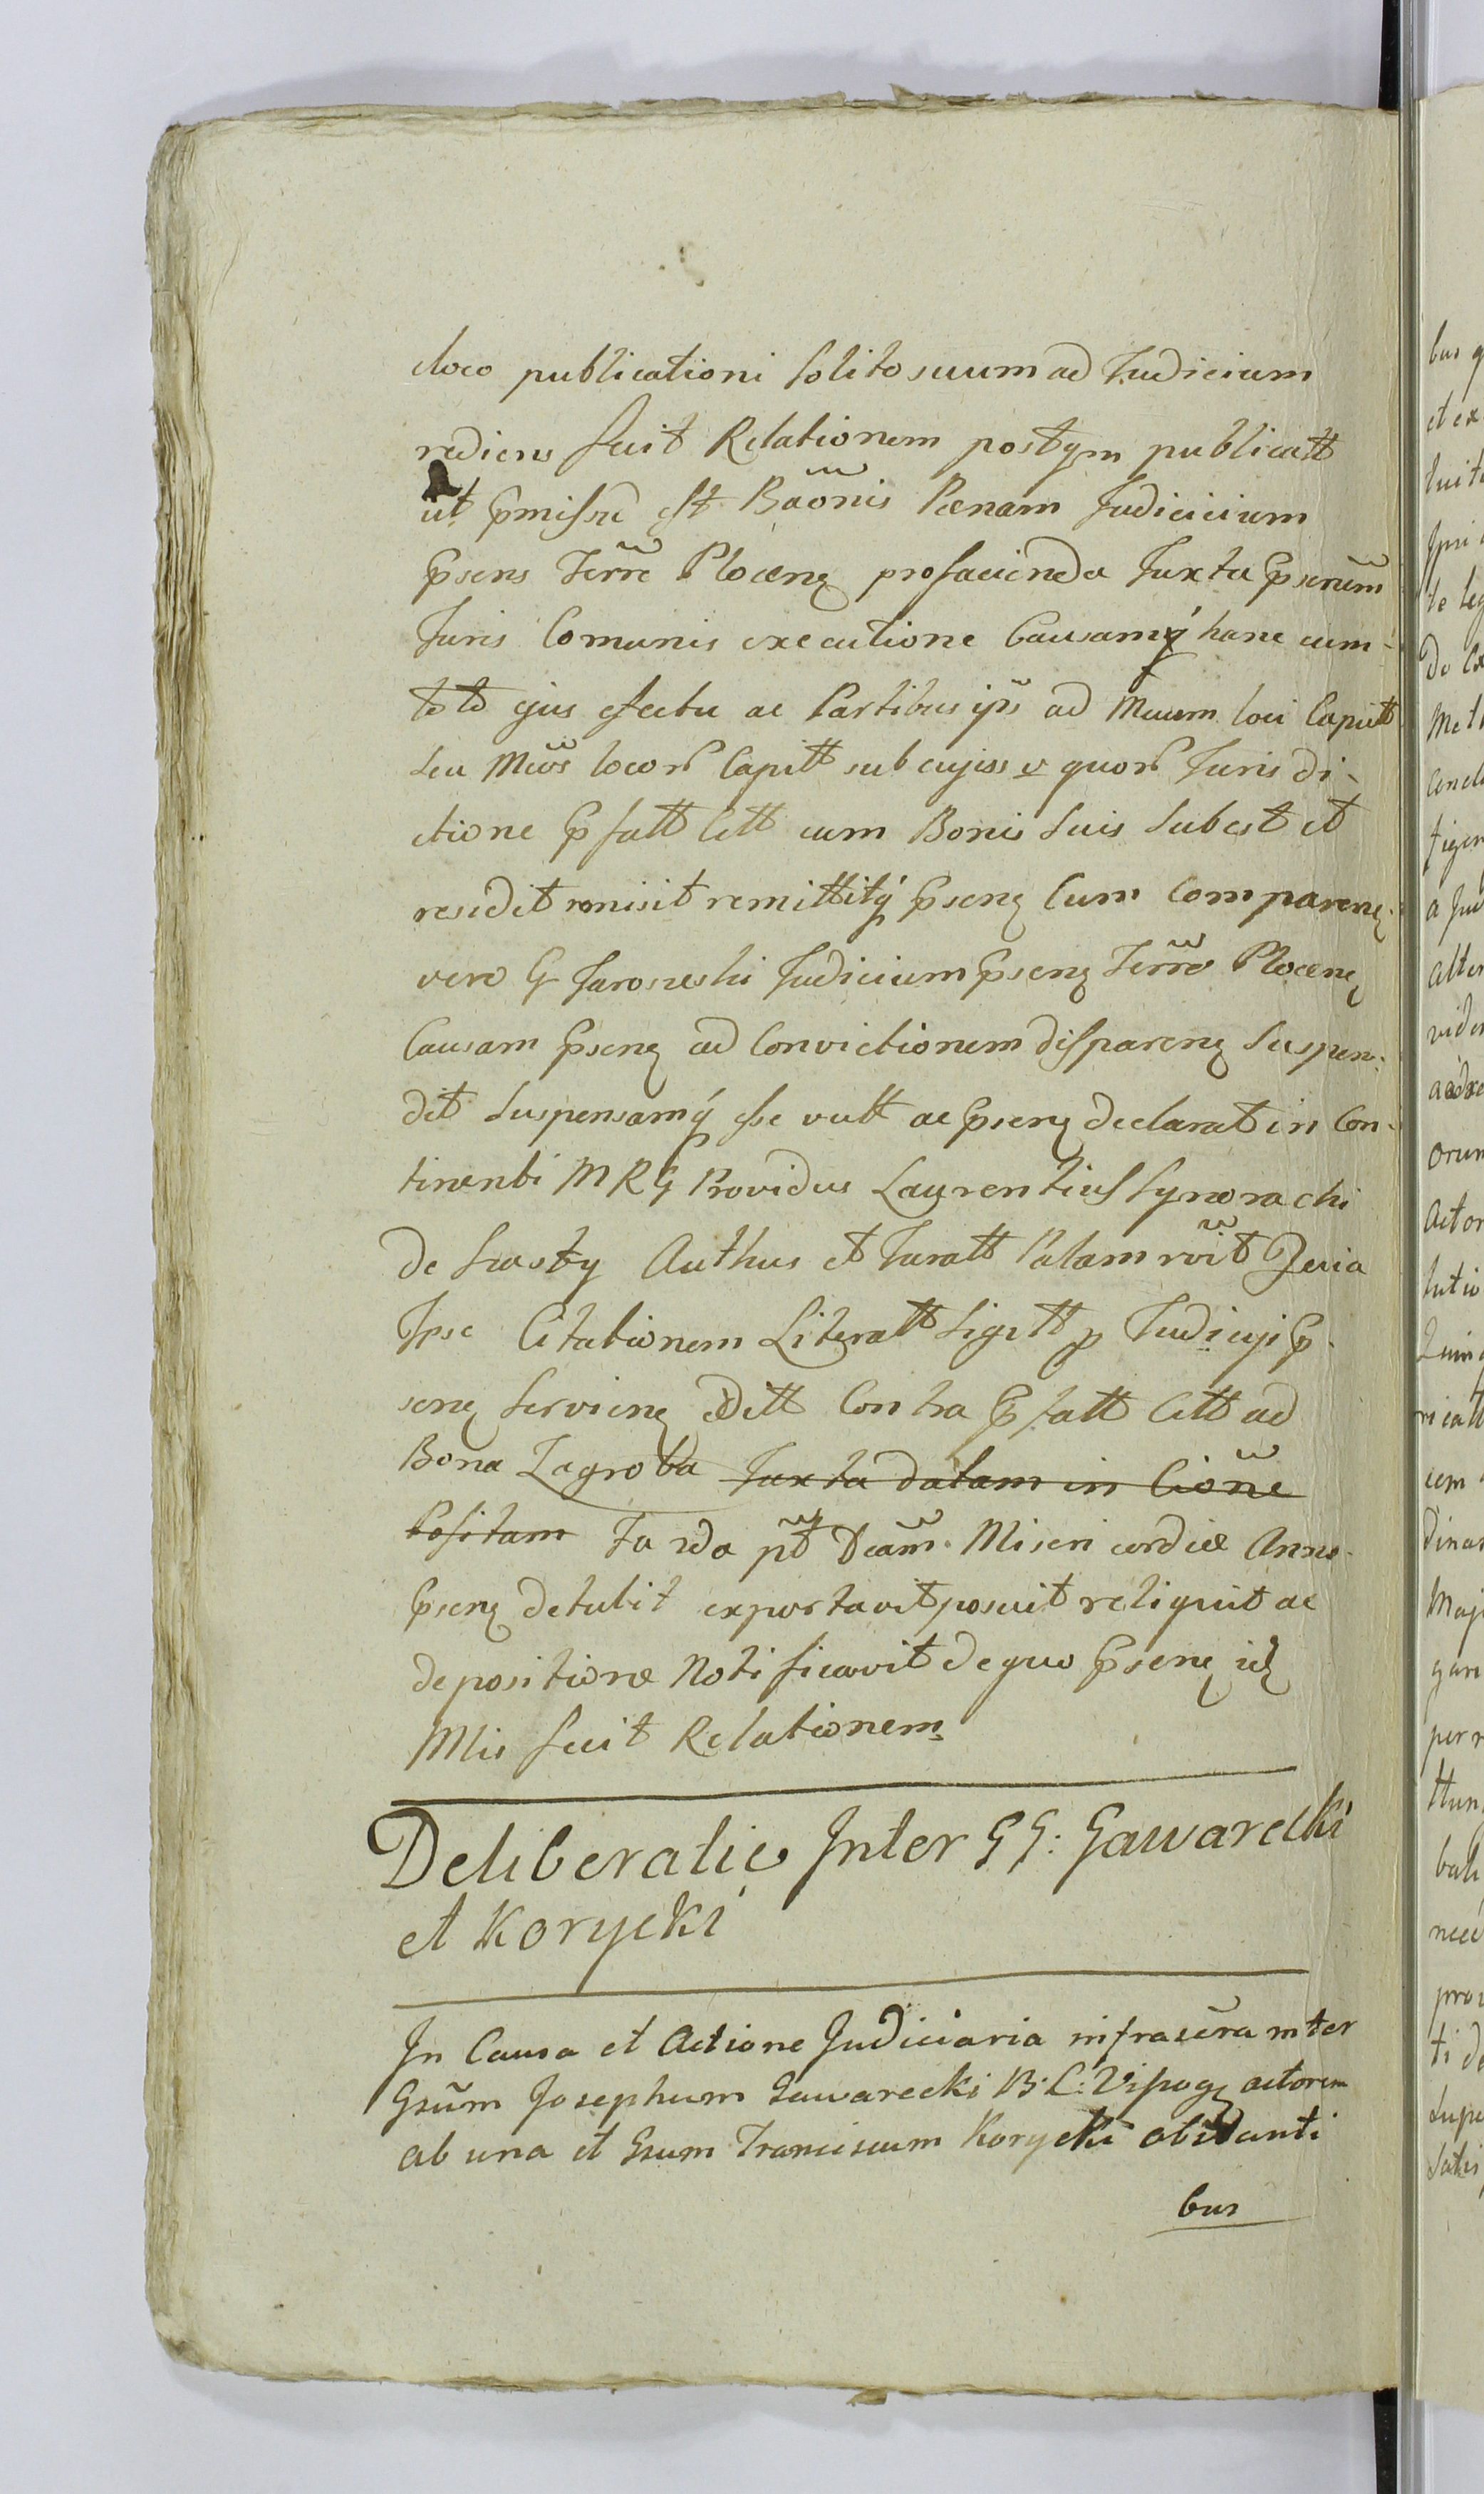 loco publicationi solito suum ad Judicium
rediens fecit Relationem postqm publicatt
ut pmissu est Bãonis Pœnam Judicium
psens Terrẽ Plocenę profacienda Juxta pserũm
Juris Comunis executione Causamq́ hanc cum-
toto ejus efectu ac Partibus ip̃s ad Mcuum loci Capitt
seu Mcõs locorũ Capitt sub cujus v quorũ Jurisdi-
ctione pfatt Citt cum Bonis suis subest et
residet remisit remittitq́ psenę Cum Comparenę
vero G Jaroszeski Judicium psenę Terrẽ Plocenę
Causam psenę ad Convictionem disparenę suspen-
dit suspensamq́ esse vult ac psenę declarat in Con-
tinenti MRG Providus Laurentius
de Authus et Juratt Palam rõit Quia
Ipse Citationem Literatt Sigitt p Judicij p-
senę Servienę Editt Contra pfatt Citt ad
Bona Zagroba Juxta datam in Ciõne
Positam Fa 2da pt Dcãm. Misericordiæ Anno
psenę detulit exportavit posuit reliquit ac
depositione Notificavit de quo psenę idę
Mlis fecit Relationem
Deliberatio Inter GG: Gawarecki
et Korycki
In Causa et Actione Judiciaria infrascr̃a inter
Gsũm Josephum Gawarecki B: C: Vipogę actorem
ab una et Gsum Franciscum Korycki obstanti
bus